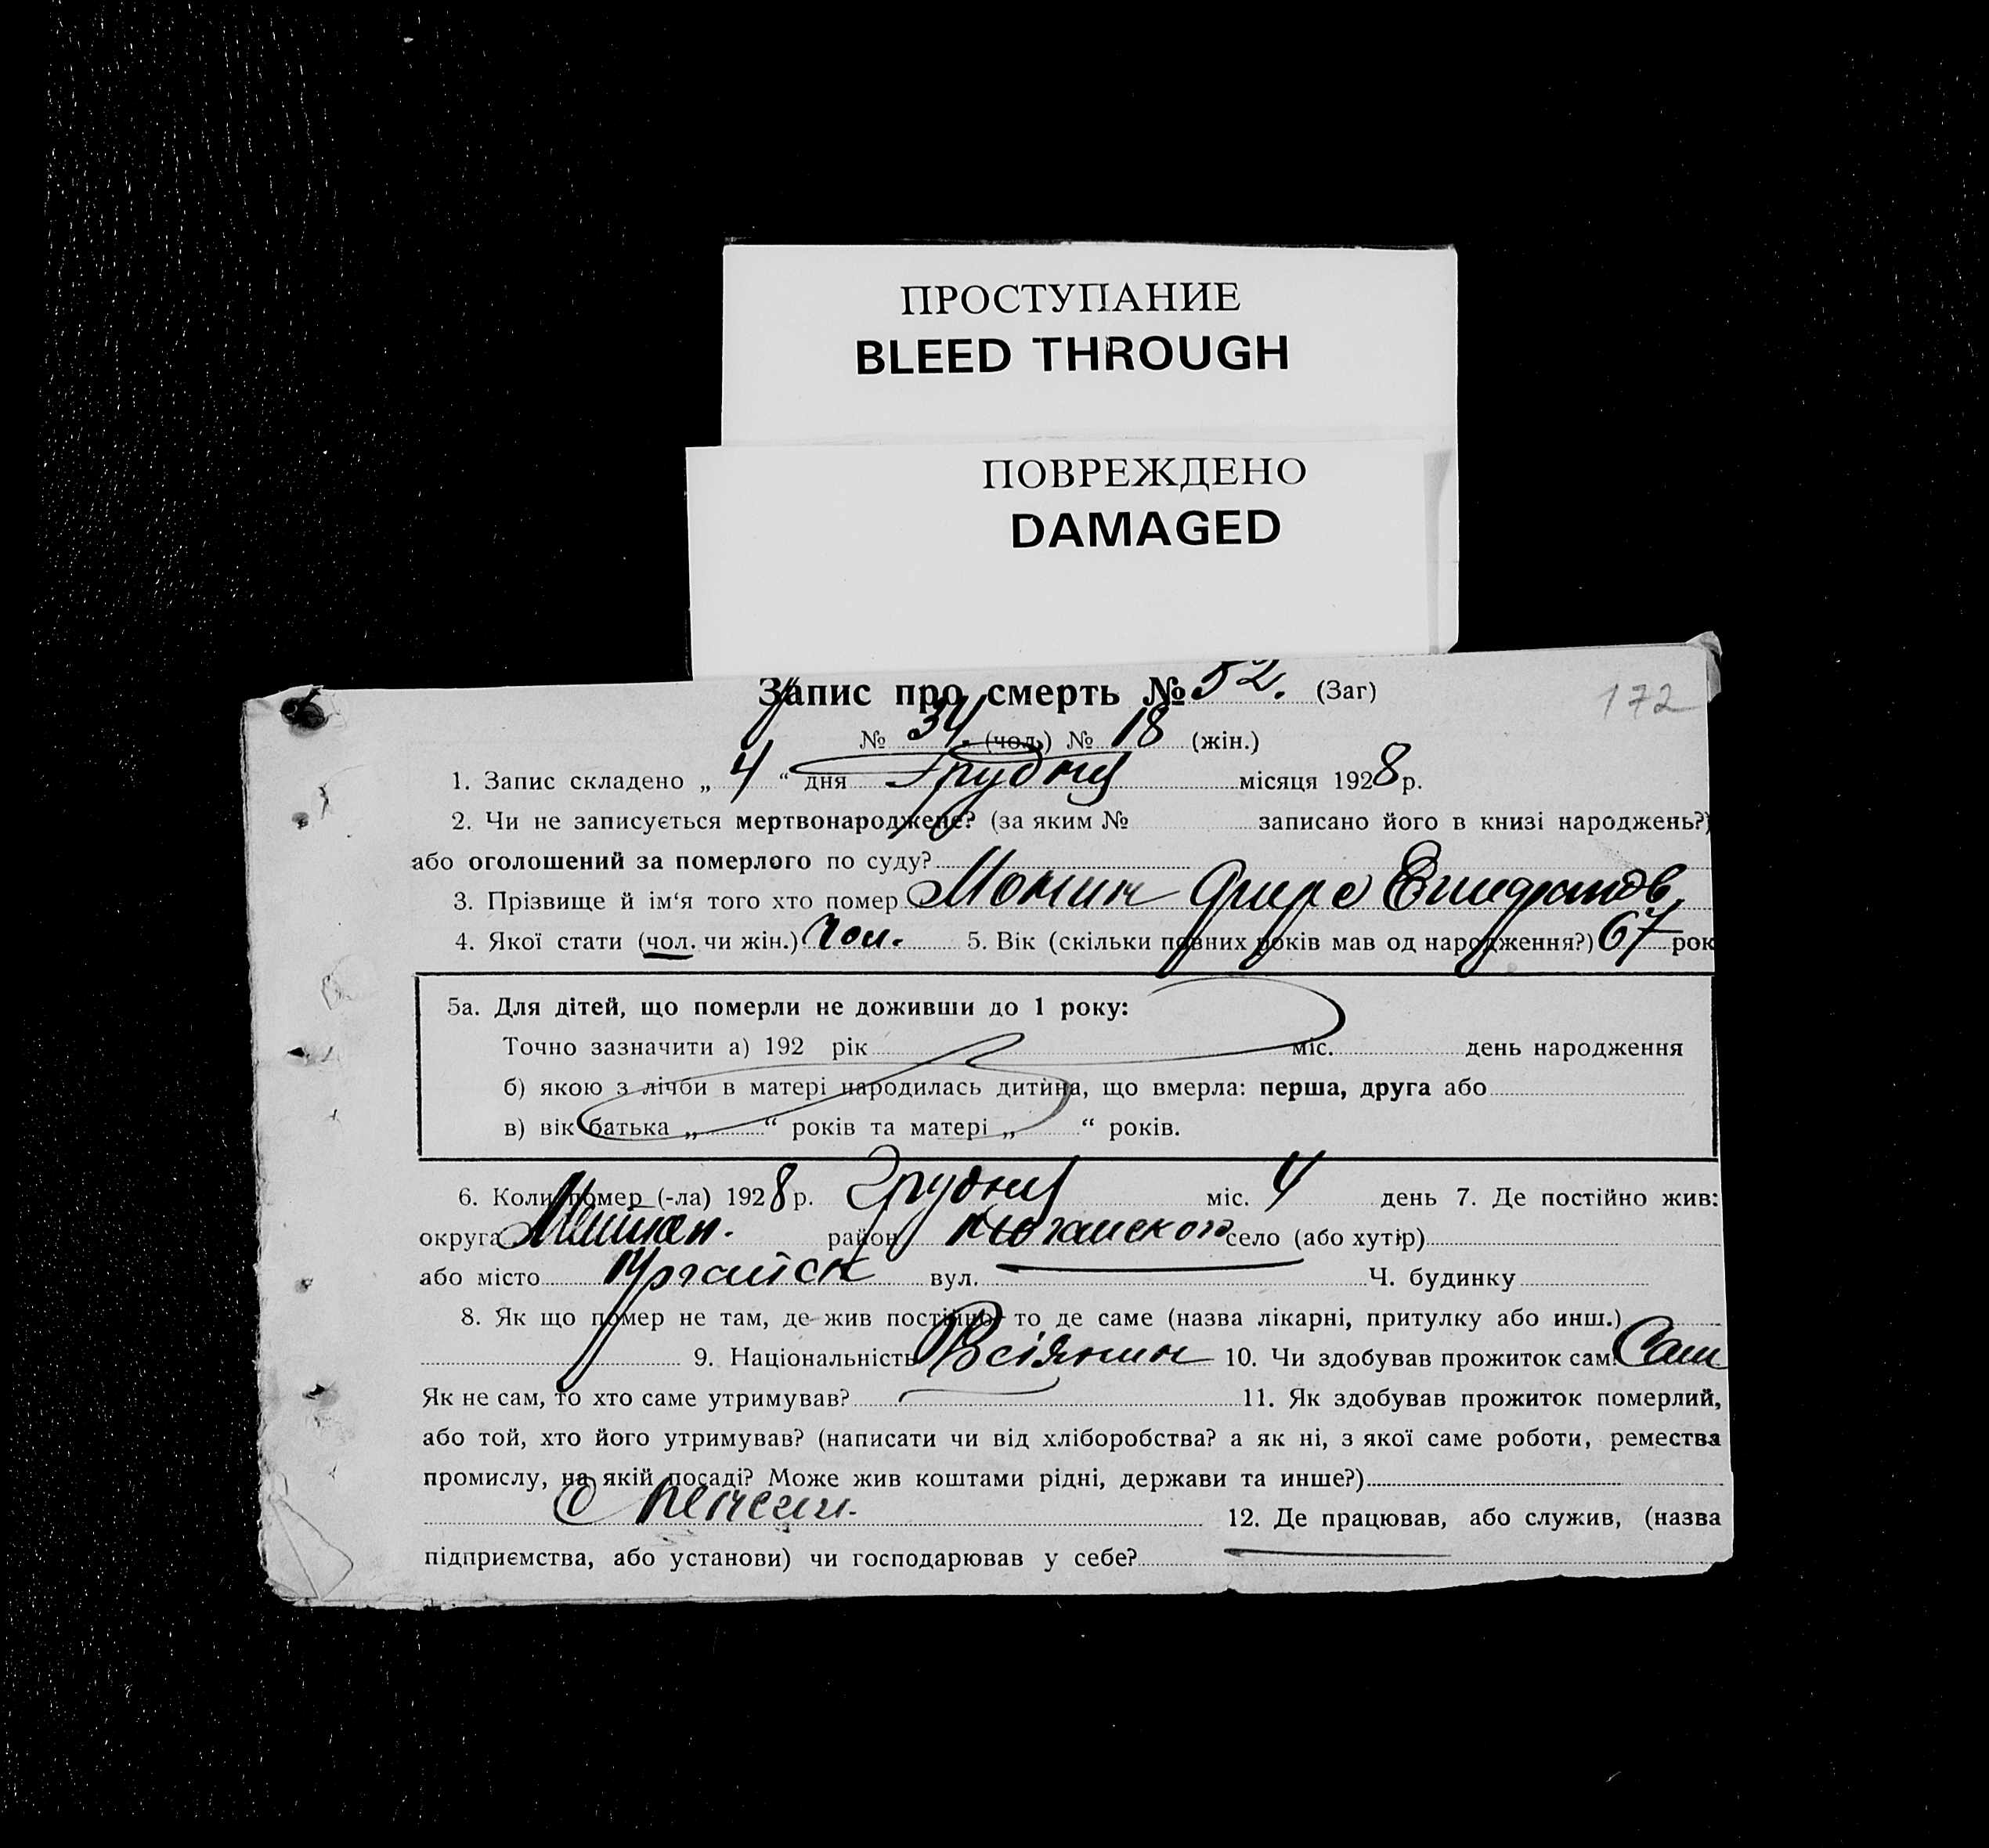 ПРОСТУПАНИЕ
BLEED THROUGH
ПОВРЕЖДЕНО
DAMAGED
Запис про смерть № 52. (Заг)
172
№ 34. (чол.) № 18 (жін.)
1. Запис складено „ 4 “ дня Грудня місяця 1928 р.
2. Чи не записується мертвонароджене? (за яким № записано його в книзі народжень?)
або оголошений за померлого по суду?
3. Прізвище й ім‘я того хто помер
4. Якої стати (чол. чи жін.) Чол. 5. Вік (скільки повних років мав од народження?) 67 рок
5а. Для дітей, що померли не доживши до 1 року:
Точно зазначити а) 192 рік міс. день народження
б) якою з лічби в матері народилась дитина, що вмерла: перша, друга або
в) вік батька „ “ років та матері „ “ років.
6. Коли помер (-ла) 1928 р. Грудня міс. 4 день 7. Де постійно жив:
округа район село (або хутір)
або місто вул. Ч. будинку
8. Як що помер не там, де жив постійно то де саме (назва лікарні, притулку або инш.)
9. Національність 10. Чи здобував прожиток сам: Сам
Як не сам, то хто саме утримував? 11. Як здобував прожиток померлий,
або той, хто його утримував? (написати чи від хліборобства? а як ні, з якої саме роботи, ремества
промислу, на якій посаді? Може жив коштами рідні, держави та инше?)
12. Де працював, або служив, (назва
підприємства, або установи) чи господарював у себе?